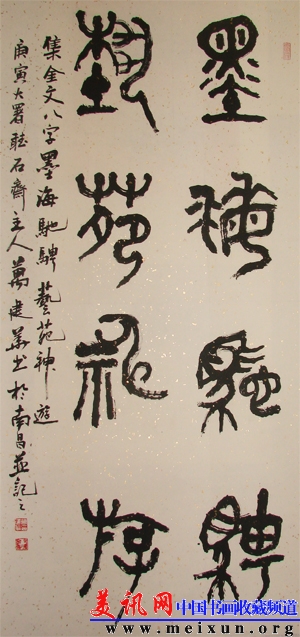 墨海馳騁
藝苑神游
集金文八字墨海馳騁藝苑神遊
庚寅大暑聽石齋主人萬建華書於南昌並記之
美讯网 中国书画收藏频道
www.meixun.org